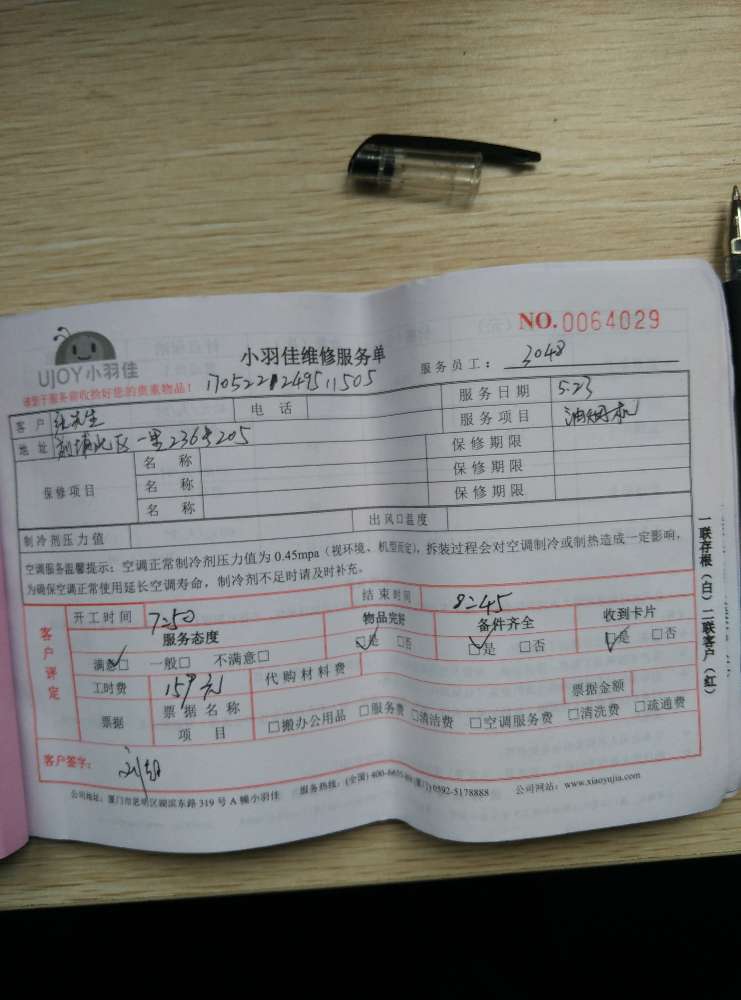 NO.0064029
UJOY小羽佳
小羽佳维修服务单
服务员工：3048
请要于服务前收拾好您的贵重物品！
客户 先生 电话 服务日期 5.23
地址 一里236号205 服务项目 油烟机
保修项目 名称 保修期限
名称 保修期限
名称 保修期限
制冷剂压力值 出风口温度
空调服务温馨提示：空调正常制冷剂压力值为0.45mpa（视环境、机型而定），拆装过程会对空调制冷或制热造成一定影响，
为确保空调正常使用延长空调寿命，制冷剂不足时请及时补充。
客户评定
开工时间 7:50 结束时间 8:45
服务态度 物品完好 备件齐全 收到卡片
满意☑ 一般□ 不满意□ ☑是 □否 ☑是 □否 ☑是 □否
工时费 159元 代购材料费
票据 票据名称 票据金额
项目 □搬办公用品 □服务费 □清洁费 □空调服务费 □清洗费 □疏通费
客户签字：
公司地址：厦门市思明区湖滨东路319号A幢小羽佳 服务热线：(全国) (厦门)0592-5178888 公司网站：www.xiaoyujia.com
一联存根（白）二联客户（红）